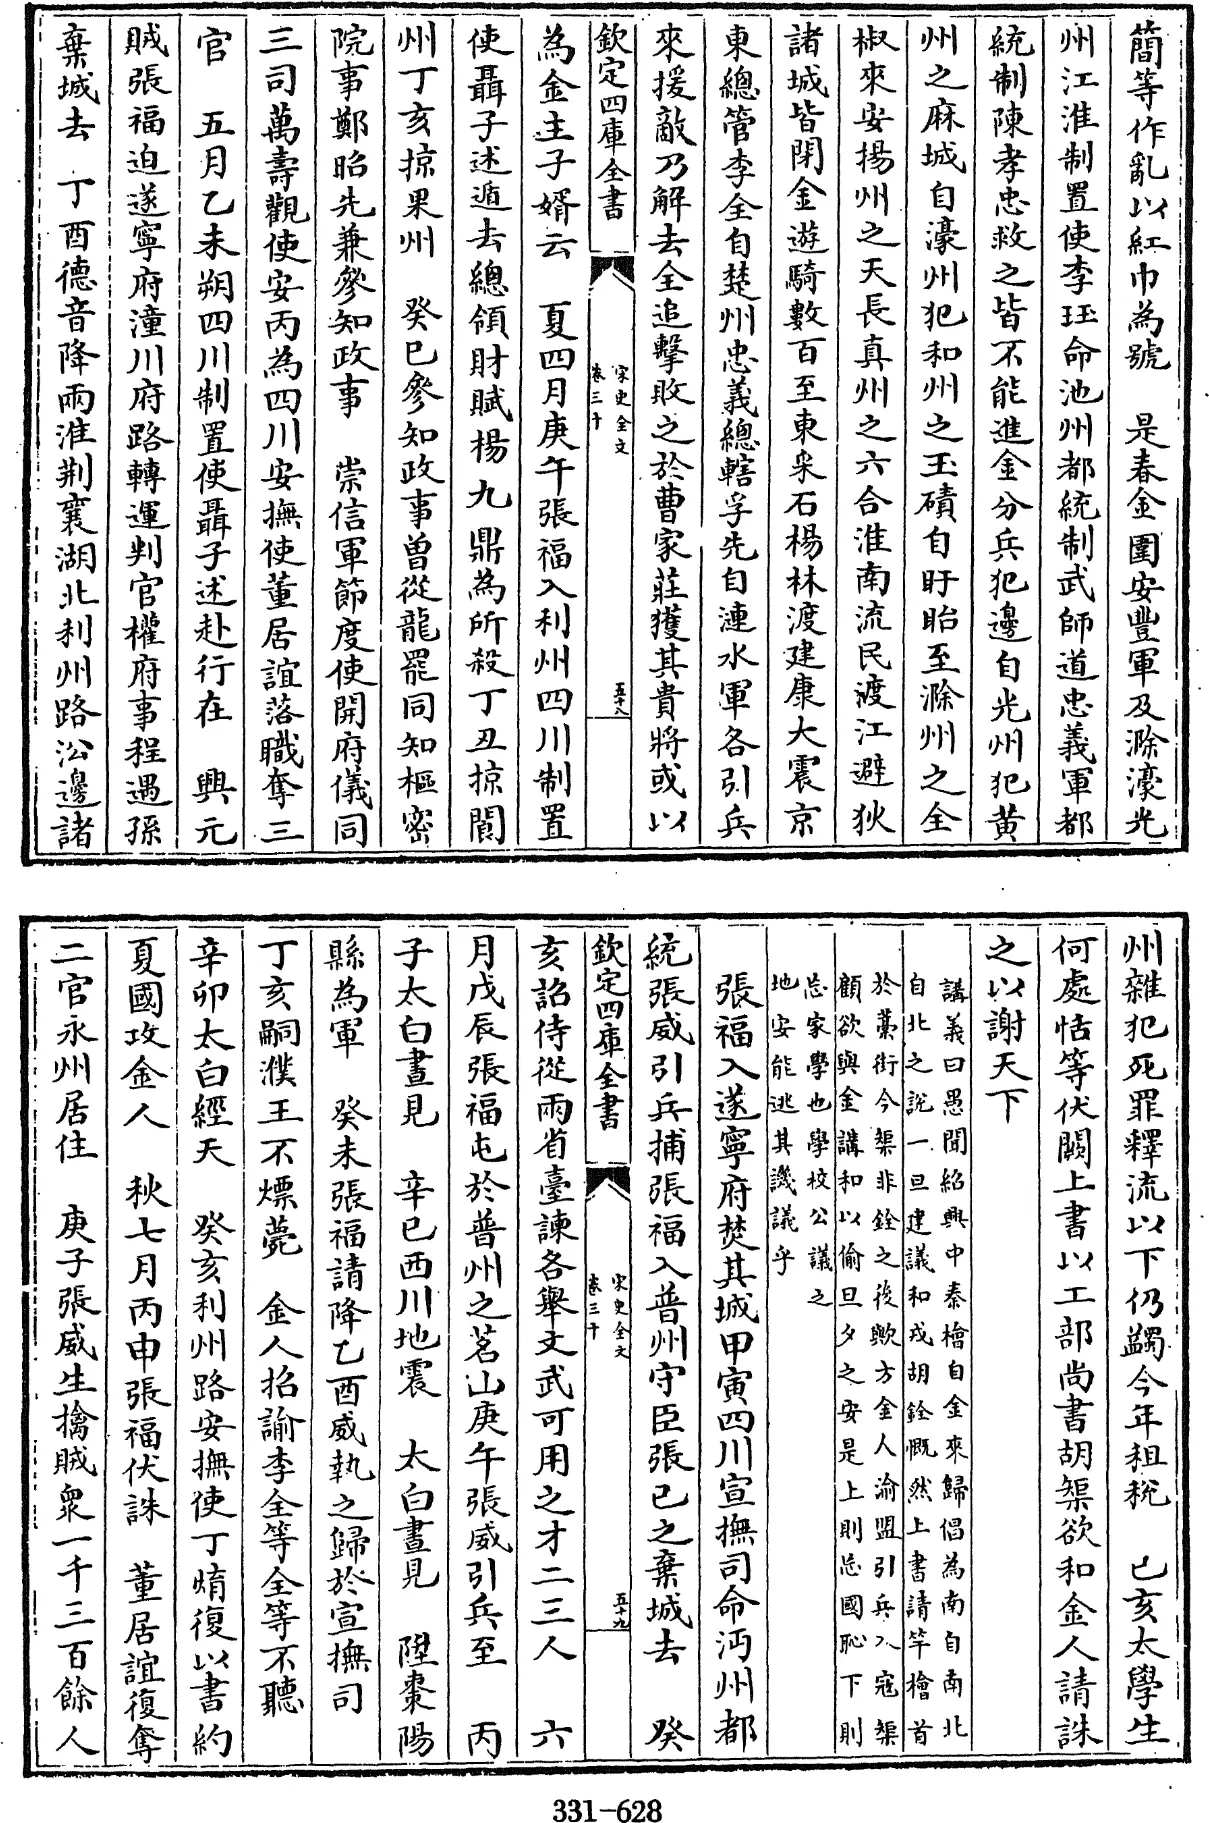 簡等作亂以紅巾為號　是春金圍安豐軍及滁濠光
州江淮制置使李珏命池州都統制武師道忠義軍都
統制陳孝忠救之皆不能進金分兵犯邊自光州犯黃
州之麻城自濠州犯和州之玉磧自盱眙至滁州之全
椒來安揚州之天長真州之六合淮南流民渡江避狄
諸城皆閉金遊騎數百至東采石楊林渡建康大震京
東總管李全自楚州忠義總轄孚先自漣水軍各引兵
來援敵乃解去全追擊敗之於曹家莊獲其貴將或以
欽定四庫全書
宋史全文
卷三十
五十八
為金主子婿云　夏四月庚午張福入利州四川制置
使聶子述遁去總領財賦楊九鼎為所殺丁丑掠閬
州丁亥掠果州　癸巳參知政事曾從龍罷同知樞密
院事鄭昭先兼參知政事　崇信軍節度使開府儀同
三司萬壽觀使安丙為四川安撫使董居誼落職奪三
官　五月乙未朔四川制置使聶子述赴行在　興元
賊張福迫遂寧府潼川府路轉運判官權府事程遇孫
棄城去　丁酉德音降兩淮荆襄湖北利州路沿邊諸
州雜犯死罪釋流以下仍蠲今年租稅　己亥太學生
何處恬等伏闕上書以工部尚書胡榘欲和金人請誅
之以謝天下
講義曰愚聞紹興中秦檜自金來歸倡為南自南北
自北之說一旦建議和戎胡銓慨然上書請竿檜首
於藁街今榘非銓之後歟方金人渝盟引兵入寇榘
顧欲與金講和以偷旦夕之安是上則忘國恥下則
忘家學也學校公議之
地安能逃其譏議乎
張福入遂寧府焚其城甲寅四川宣撫司命沔州都
統張威引兵捕張福入普州守臣張已之棄城去　癸
欽定四庫全書
宋史全文
卷三十
五十九
亥詔侍從兩省臺諫各舉文武可用之才二三人　六
月戊辰張福屯於普州之茗山庚午張威引兵至　丙
子太白晝見　辛巳西川地震　太白晝見　陞棗陽
縣為軍　癸未張福請降乙酉威執之歸於宣撫司
丁亥嗣濮王不熛薨　金人招諭李全等全等不聽
辛卯太白經天　癸亥利州路安撫使丁焴復以書約
夏國攻金人　秋七月丙申張福伏誅　董居誼復奪
二官永州居住　庚子張威生擒賊衆一千三百餘人
331-628